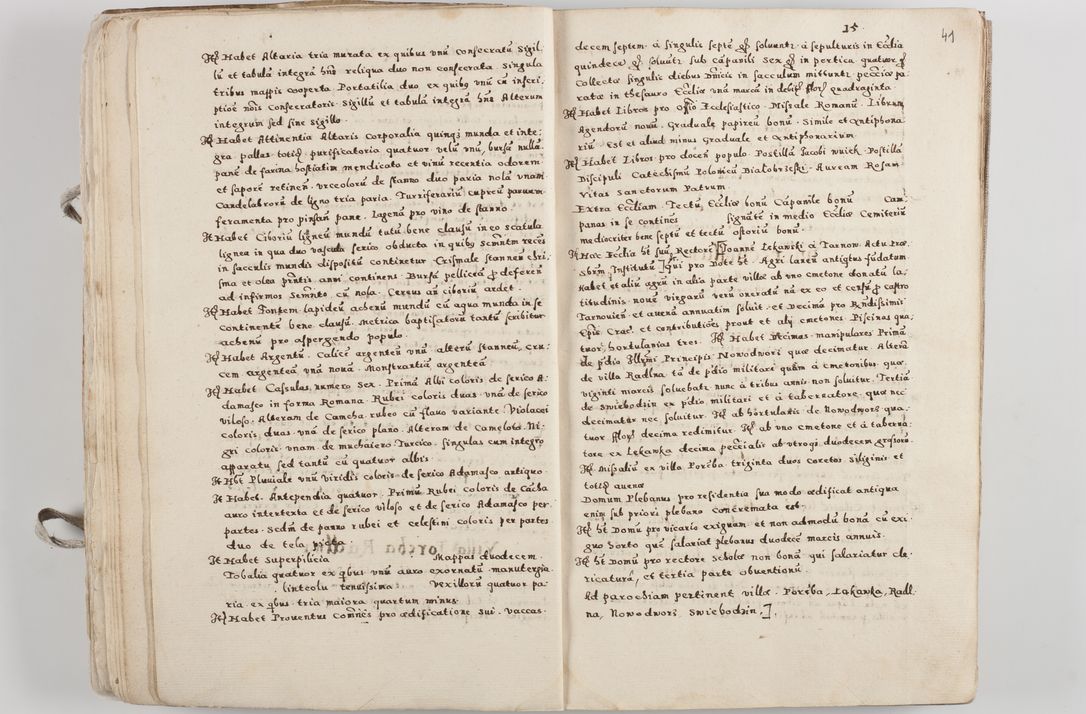 It͠ Habet Altaria tria murata ex quibus vnũ consecratũ Sigil-
lũ et tabulã integrã hñs reliqua duo non consecrata. Singula
tribus mappis cooperta. Portatilia duo ex quibs vnũ cũ inscri-
ptiõe nõis Consecratoris. Sigillũ et tabulã integrã hñs Alterum
integrum sed sine sigillo.
It͠ Habet Attinentia Altaris Corporalia quinq; munda et inte-
gra pallas totiđ purificatoria quatuor velũ vnũ, bursã nullã
panẽ de farina hostiatim mendicata et vinũ recentia odorem
et saporẽ retineñ. vrceolorũ de stanno duo paria nolã vnam
Candelabrorũ de ligno tria paria. Turriferariũ cupreũ paruum
feramenta pro pinsañ pane. Lagenã pro vino de stanno
It Habet Ciboriũ ligneũ mundũ tutũ bene clausũ in eo scatula
lignea in qua duo vascula serico obducta in quibs scmñtm recẽs
in sacculis mundis dispositũ continetur Crismale stanneũ Chri-
sma et olea pñtis anni continens. Bursã pelliceã ꝑ deferẽñ
ad infirmos Semñto cũ nola. Cereus añ ciboriũ ardet.
It͠ Habet Fontem lapideũ achenũ mundũ cũ aqua munda in se
continentẽ bene clausũ. Metrica baptisatorũ tantũ scribitur
achenũ pro aspergendo populo.
It͠ Habet Argentũ. Calicẽ argenteũ vnũ alterũ stanneũ, Cru-
cem argenteã vnã nouã. Monstrantiã argenteã
It͠ Habet Casulas numero Sex. Primã Albi coloris de serico A-
damasco in forma Romana. Rubei coloris duas vnã de serico
viloso. Alteram de Camcha rubeo cũ flauo variante. Violacei
coloris duas vnã de serico plano. Alteram de Cameloto. Ni-
gri coloris vnam de muchaiero Turcico. singulas cum integro
apparatu sed tantũ cũ quatuor albis.
It Hb͠t Pluuiale vnũ viridis coloris de serico Adamasco antiquo.
It Habet. Antependia quatuor. Primũ Rubei coloris de Cãcha
auro intertexta et de serico viloso et de serico Adamasco per
partes. Scdm̃ de panno rubei et celestini coloris per partes
duo de tela picta.
It Habet Superpilicia Mappas duodecem.
Tobalia quatuor ex qb̃us vnũ auro exornatũ manutergia
linteolu tenuissima Vexillorũ quatuor pa-
ria ex qb̃us tria maiora quartum minus.
It͠ Habet Prouentus Com̃nes pro ædificatione sui. vaccas.
15. 41
decem septem. à singulis septẽ gͦͬ soluuntr. à sepulturis in Ecclĩa
quindecẽ gͦͬ soluũtr sub cãpanili Sex gͦͬ in pertica quatuor gͦͬ
Collectæ singulis diebus Dñicis in sacculum mittuntr. pecũiæ pa-
ratæ in thesauro Ecclĩæ vnã marcã in debitis flor. quadraginta.
It͠ Habet Libros pro Offio Ecclesiastico. Missale Romanũ. Librum
Agendorũ nouũ. Graduale papireũ bonũ. Simile et Antiphona-
riũ. Est et aliud minus Graduale et Antiphonarium.
It͠ Habet Libros pro doceñ populo. Postillã Jacobi Wuiek. Postillã
Discipuli Catechismũ Polonicũ Białobrzeski. Auream Rosam
Vitas Sanctorum Patrum.
Extra Ecclĩam. Tectũ Eccliæ bonũ Cãpanile bonũ Cam-
panas in se continẽs signũtẽ in medio Eccliæ Cemiteriũ
mediocriter bene septũ et tectũ Ossoriũ bonũ.
It Hæc Ecclĩa ht̃ suũ Rectorẽ [Joannẽ Lekawski à Tarnow. Actu Præ-
sbrm̃ Institutũ] qui pro Dote ht̃. Agri laneũ antiqtus fũdatum
Habet et aliũ agrũ in alia parte villæ ab vno cmetone donatũ la-
titudinis nouẽ virgarũ verũ oneratũ nã ex eo et censũ ꝑ castro
Tarnouieñ et auenã annuatim soluit. et Decimã pro Rñdissimi
Epis Crac. et contributiões prout et alij cmetones Piscinas qua-
tuor, hortulanias tres. It͠ Habet Decimas manipulares Primã
de p̃dio Illmi Principis Nowodwori quæ decimatur. Alterã
de villa Radlna tã de p̃dio militari quãm à cmetonibus quæ
viginti marcis soluebatr. nunc à tribus annis non soluitur. Tertiã
de Swiebodzin ex p̃dio militari et à tabernatore quæ nec
decimatur nec soluitur. It͠ ab hortulanis de Nowodworz qua-
tuor fflor. decima redimitur. It͠ ab vno cmetone et à taberna-
tore ex Lekawka decima pecũialis ab vtroq; duodecem grossorũ.
It͠ Missaliũ ex villa Porẽba triginta duos coretos siliginis et
totiđ auenæ
Domum Plebanus pro residentia sua modo ædificat antiqua
enim sub priori plebano concremata est.
It͠ ht̃ Domũ pro vicario exiguam et non admodũ bonã cũ exi-
guo horto quẽ salariat plebanus duodecẽ marcis annuis.
It͠ ht̃ Domũ pro rectore scholæ non bonã qui salariatur cle-
ricaturã, et tertia parte obuentionũ.
Ad parochiam pertinent villæ. Porẽba, Lekawka, Radl-
na, Nowodworz, Swiebodzin,].